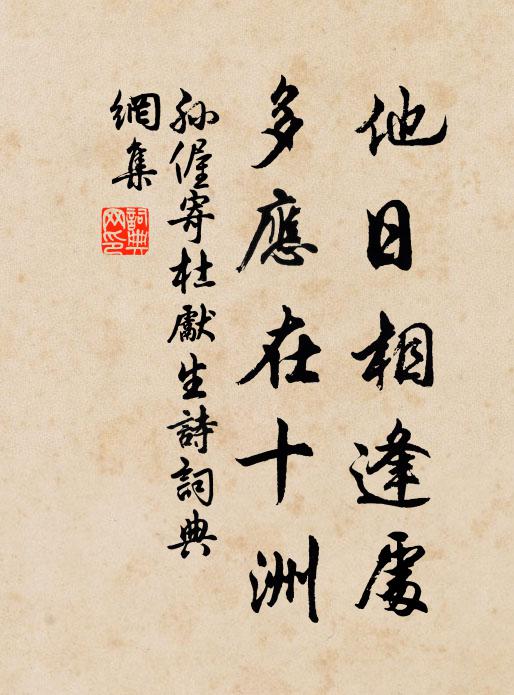 他日相逢處
多應在十洲
孫偓寄杜獻生詩詞典
網集
詞典網印